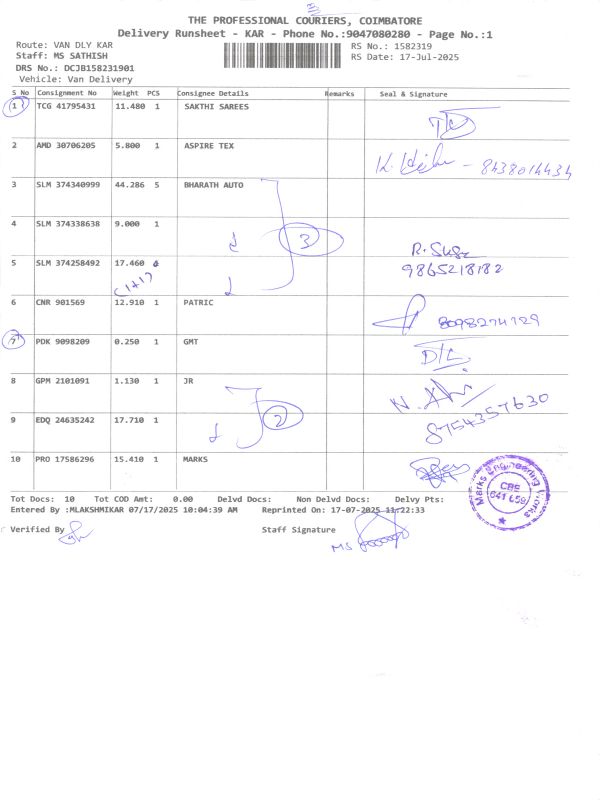 THE PROFESSIONAL COURIERS, COIMBATORE
Delivery Runsheet - KAR - Phone No.:9047080280 - Page No.:1
Route: VAN DLY KAR RS No.: 1582319
Staff: MS SATHISH RS Date: 17-Jul-2025
DRS No.: DCJB158231901
Vehicle: Van Delivery
S No Consignment No Weight PCS Consignee Details Remarks Seal & Signature
1 TCG 41795431 11.480 1 SAKTHI SAREES
2 AMD 30706205 5.800 1 ASPIRE TEX
3 SLM 374340999 44.286 5 BHARATH AUTO
4 SLM 374338638 9.000 1 3
5 SLM 374258492 17.460 R. Suga
(1+1) 9865218182
6 CNR 901569 12.910 1 PATRIC 8098274129
7 PDK 9098209 0.250 1 GMT D/L
8 GPM 2101091 1.130 1 JR
9 EDQ 24635242 17.710 1 2 8754357630
10 PRO 17586296 15.410 1 MARKS
Marks Engineering Works
CBE
641 659
Tot Docs: 10 Tot COD Amt: 0.00 Delvd Docs: Non Delvd Docs: Delvy Pts:
Entered By :MLAKSHMIKAR 07/17/2025 10:04:39 AM Reprinted On: 17-07-2025 11:22:33
Verified By Staff Signature
MS